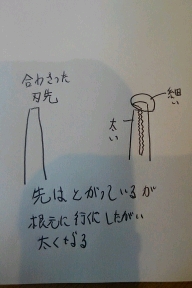 合わさった
刃先
細い
太い
先はとがっているが
根元に行くにしたがい
太くなる